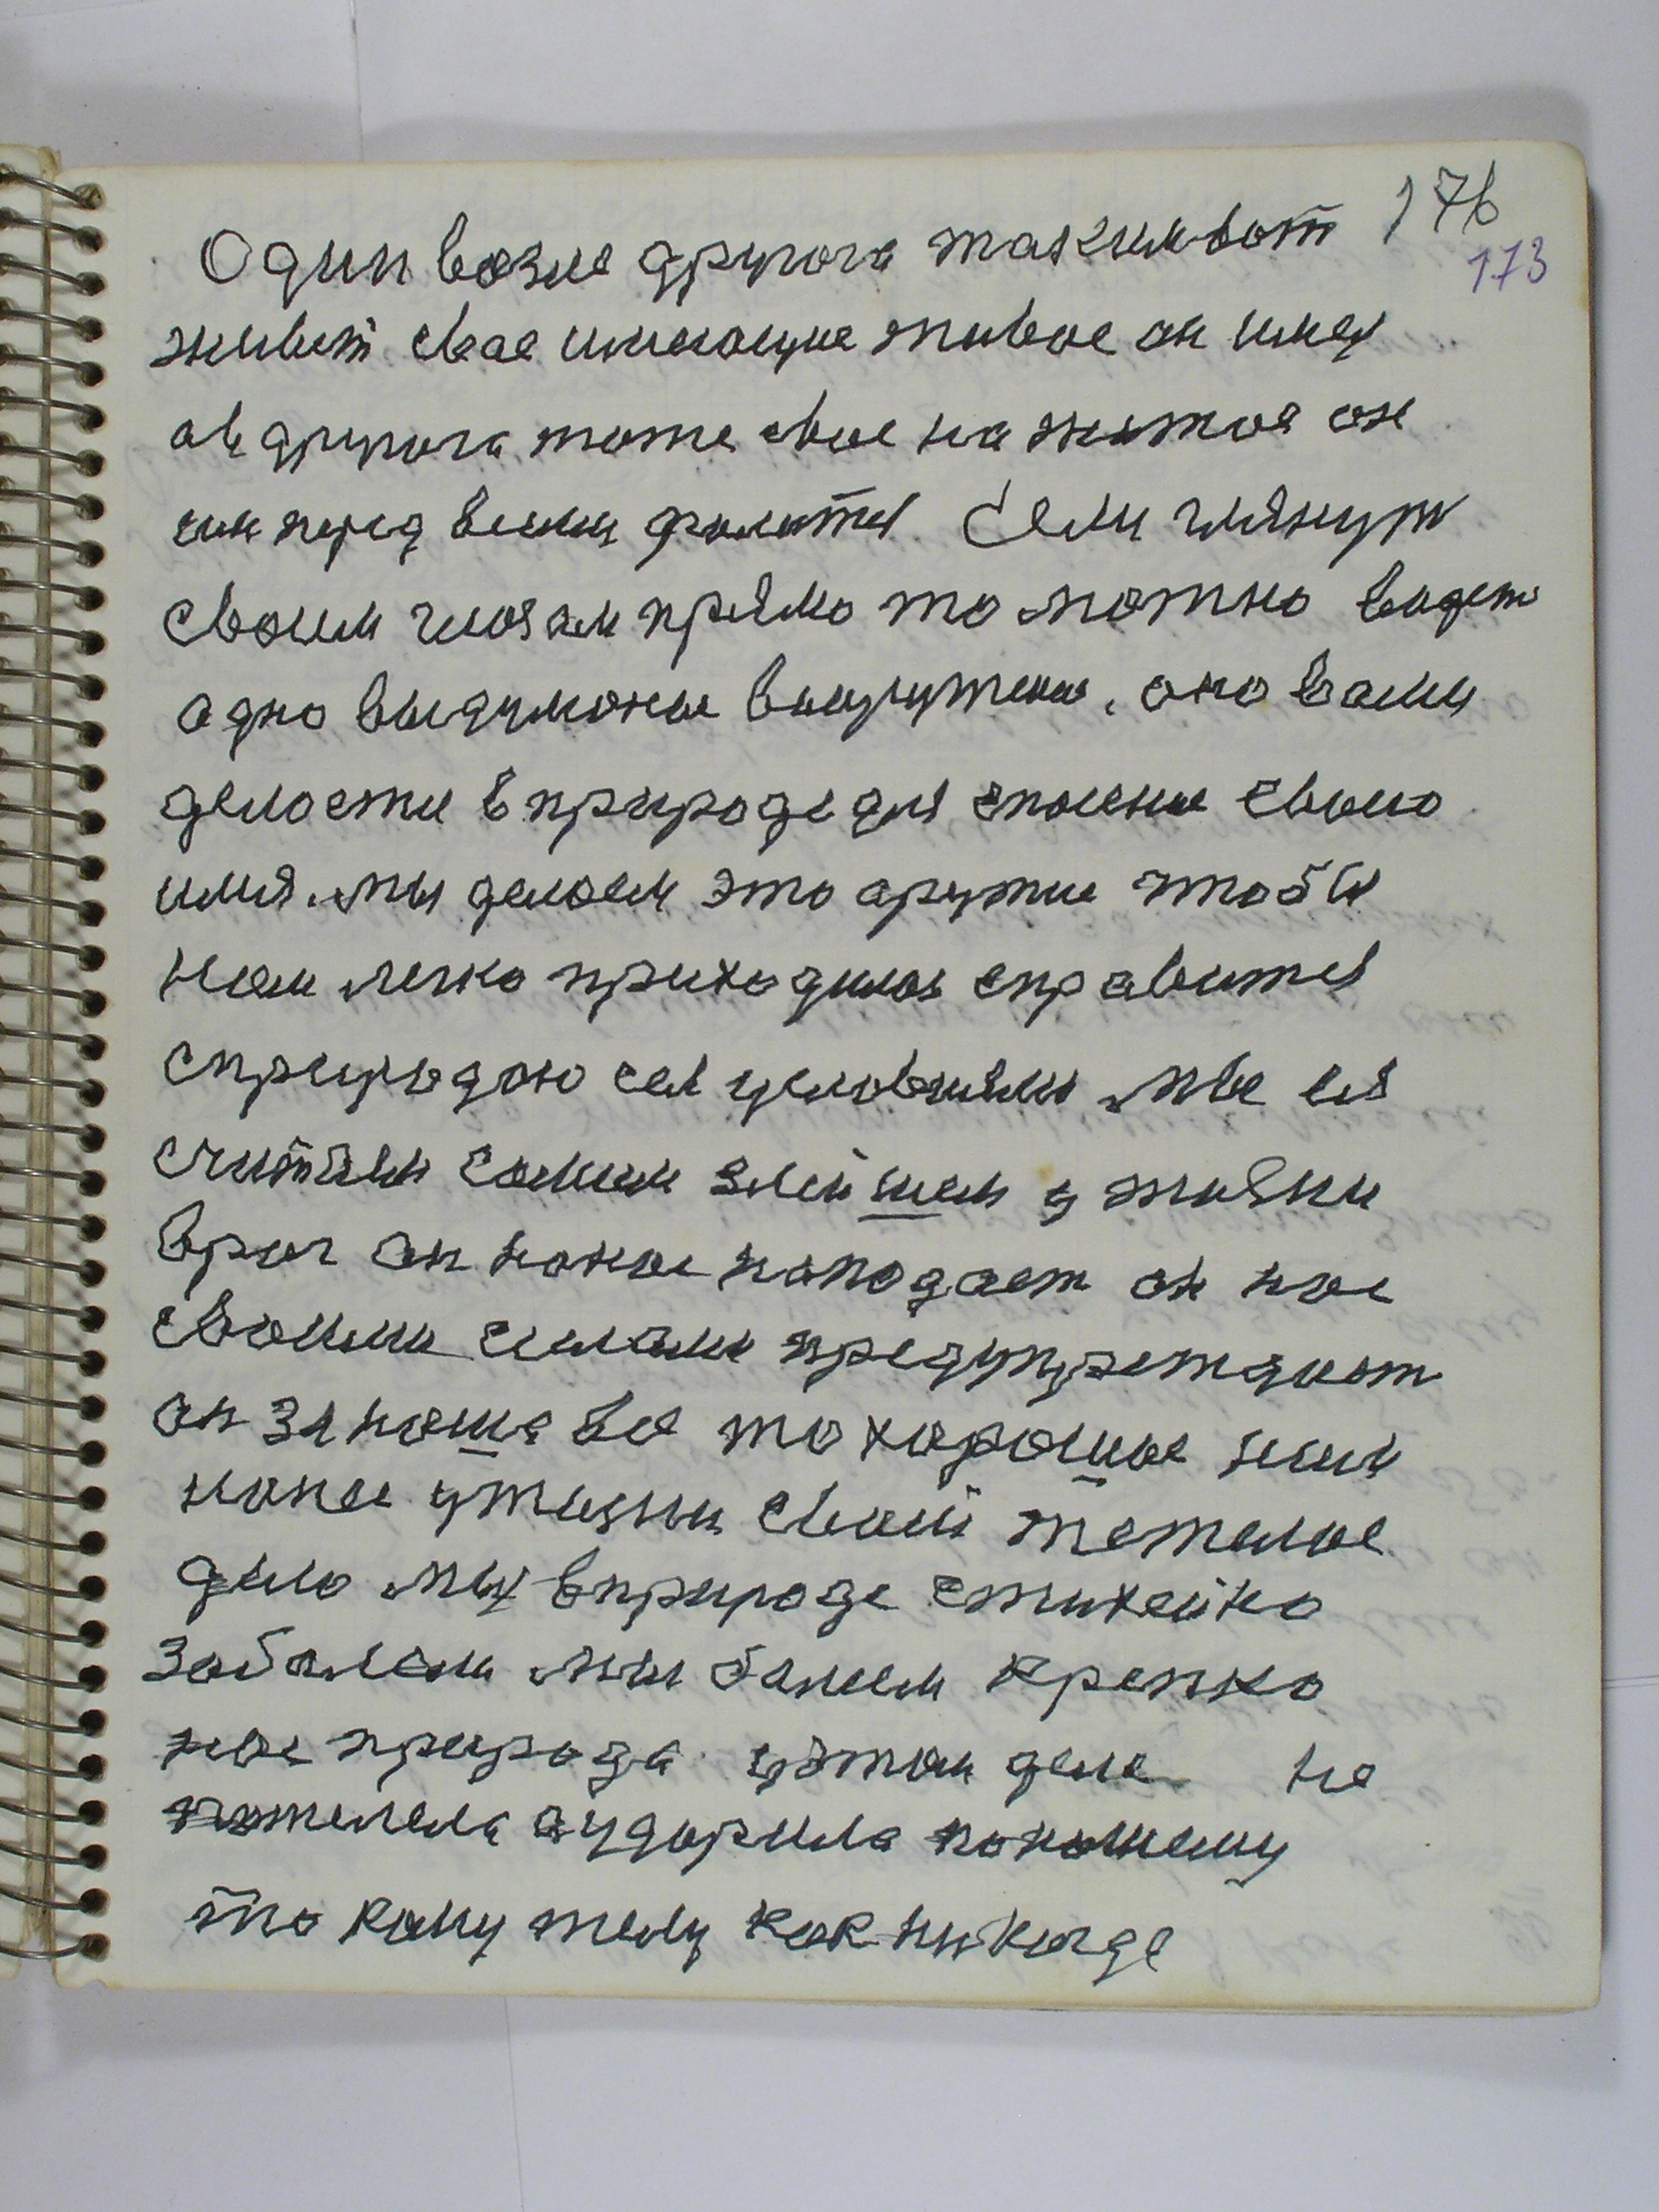 176
173
Один возле другого таким вот
живет свае имеющие живое он имея
ав другога тоже свое нажитое он
им перед всеми фалится Если глянуть
своим глозам прямо то можно видеть
адно выдимоные вааружение, оно вами
делается в природе для спасение своего
имя. мы делаем это аружие чтобы
Нам легко приходилось справится
сприродою сея условиями мы ея
считаем самим злейшем у жизни
враг он нанас нападает он нас
своими силами предупреждает
он за наше все то хорошое ним
нанас ужизни своей тежелое
дело мы в природе стихейно
заболеем мы балеем крепко
нас природа у этом деле не
пожелела аударила понашему
то кому телу как никогда